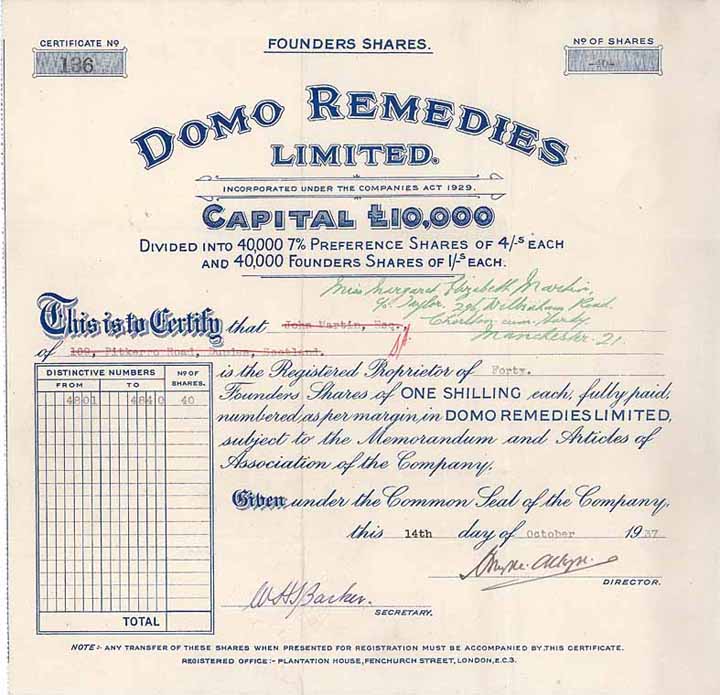 CERTIFICATE Nº
136
FOUNDERS SHARES.
Nº OF SHARES
-40-
DOMO REMEDIES
LIMITED.
INCORPORATED UNDER THE COMPANIES ACT 1929.
CAPITAL £10,000
DIVIDED INTO 40,000 7% PREFERENCE SHARES OF 4/-S EACH
AND 40,000 FOUNDERS SHARES OF 1/-S EACH.
Miss Margaret Elizabeth Martin,
c/o Taylor. Wilbraham Road.
Chorlton-cum-Hardy.
Manchester. 21.
This is to Certify that John Martin, Esq.,
of 189, Pitkerro Road, Dundee, Scotland.
is the Registered Proprietor of Forty.
Founders Shares of ONE SHILLING each, fully paid,
numbered, as per margin in DOMO REMEDIES LIMITED,
subject to the Memorandum and Articles of
Association of the Company,
Given under the Common Seal of the Company,
this 14th day of October 1937
DISTINCTIVE NUMBERS
FROM TO
Nº OF SHARES.
4801 4840 40
TOTAL
DIRECTOR.
W H Barker.
SECRETARY.
NOTE:- ANY TRANSFER OF THESE SHARES WHEN PRESENTED FOR REGISTRATION MUST BE ACCOMPANIED BY, THIS CERTIFICATE.
REGISTERED OFFICE:- PLANTATION HOUSE, FENCHURCH STREET, LONDON, E.C.3.